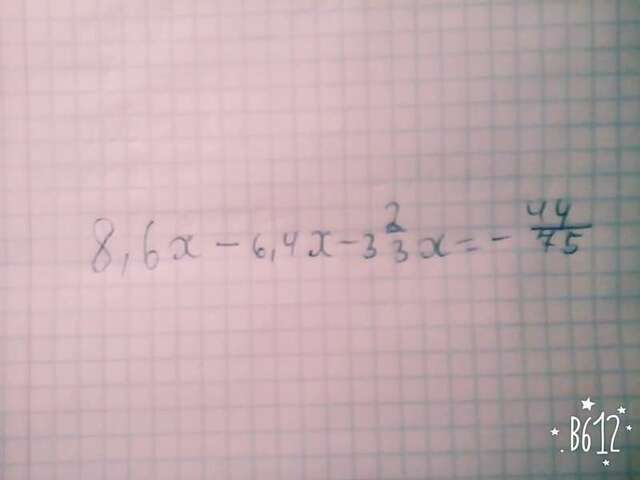 8,6x - 6,4x - 3 2/3 x = - 44/75
B612